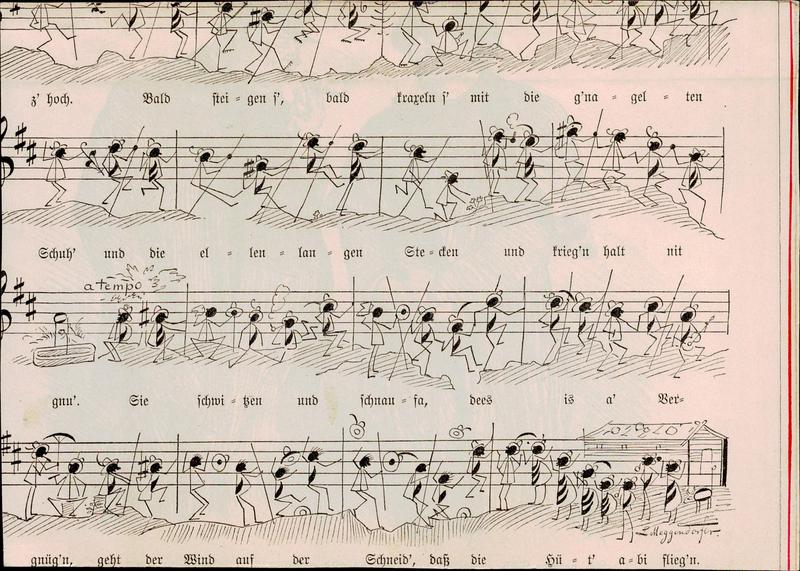 z' hoch. Bald stei = gen s', bald kraxeln s' mit die g'na = gel = ten
Schuh' und die el = len = lan = gen Ste = cken und krieg'n halt nit
a tempo
gnu'. Sie schwi = tzen und schnau = fa, dees is a' Ver=
L. Meggendorfer.
gnüg'n, geht der Wind auf der Schneid', daß die Hü = t' a = bi flieg'n.